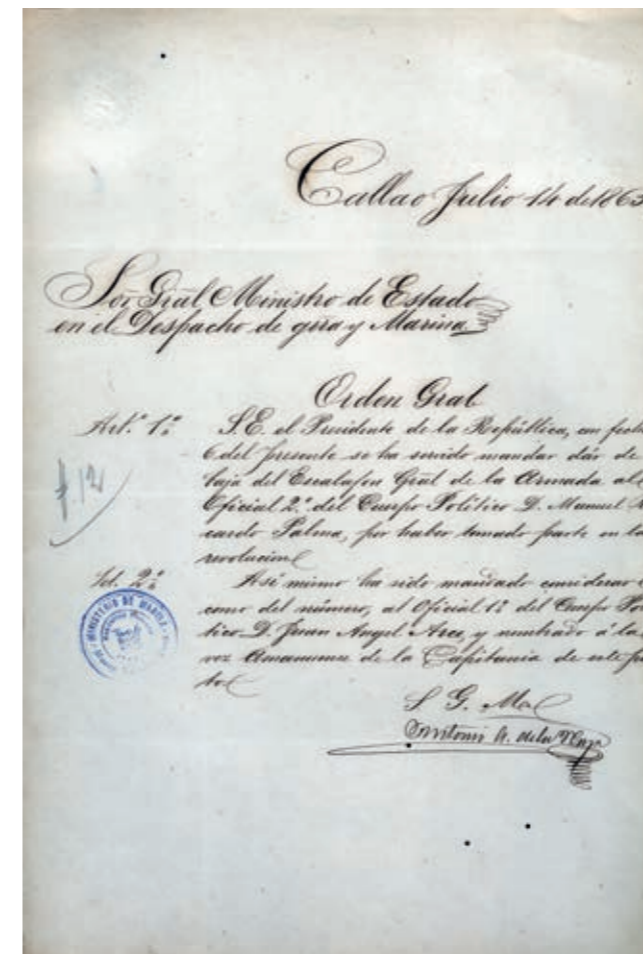 Callao Julio 14 de 186
Sor. Gral Ministro de Estado
en el Despacho de grra y Marina
Orden Gral
Art.º 1º S.E. el Presidente de la República, con fecha
6 del presente se ha servido mandar dár de
baja del Escalafon Gral de la Armada al
Oficial 2º del Cuerpo Político D. Manuel
cardo Palma, por haber tomado parte en la
revolucion
Art. 2º Asi mismo ha sido mandado considerar
como del número, al Oficial 1º del Cuerpo Po
tico D. Juan Angel Arce, y nombrado á la
vez Amanuense de la Capitania de este
to
MINISTERIO DE MARINA
S. G. M.
Antonio A. de la Haza